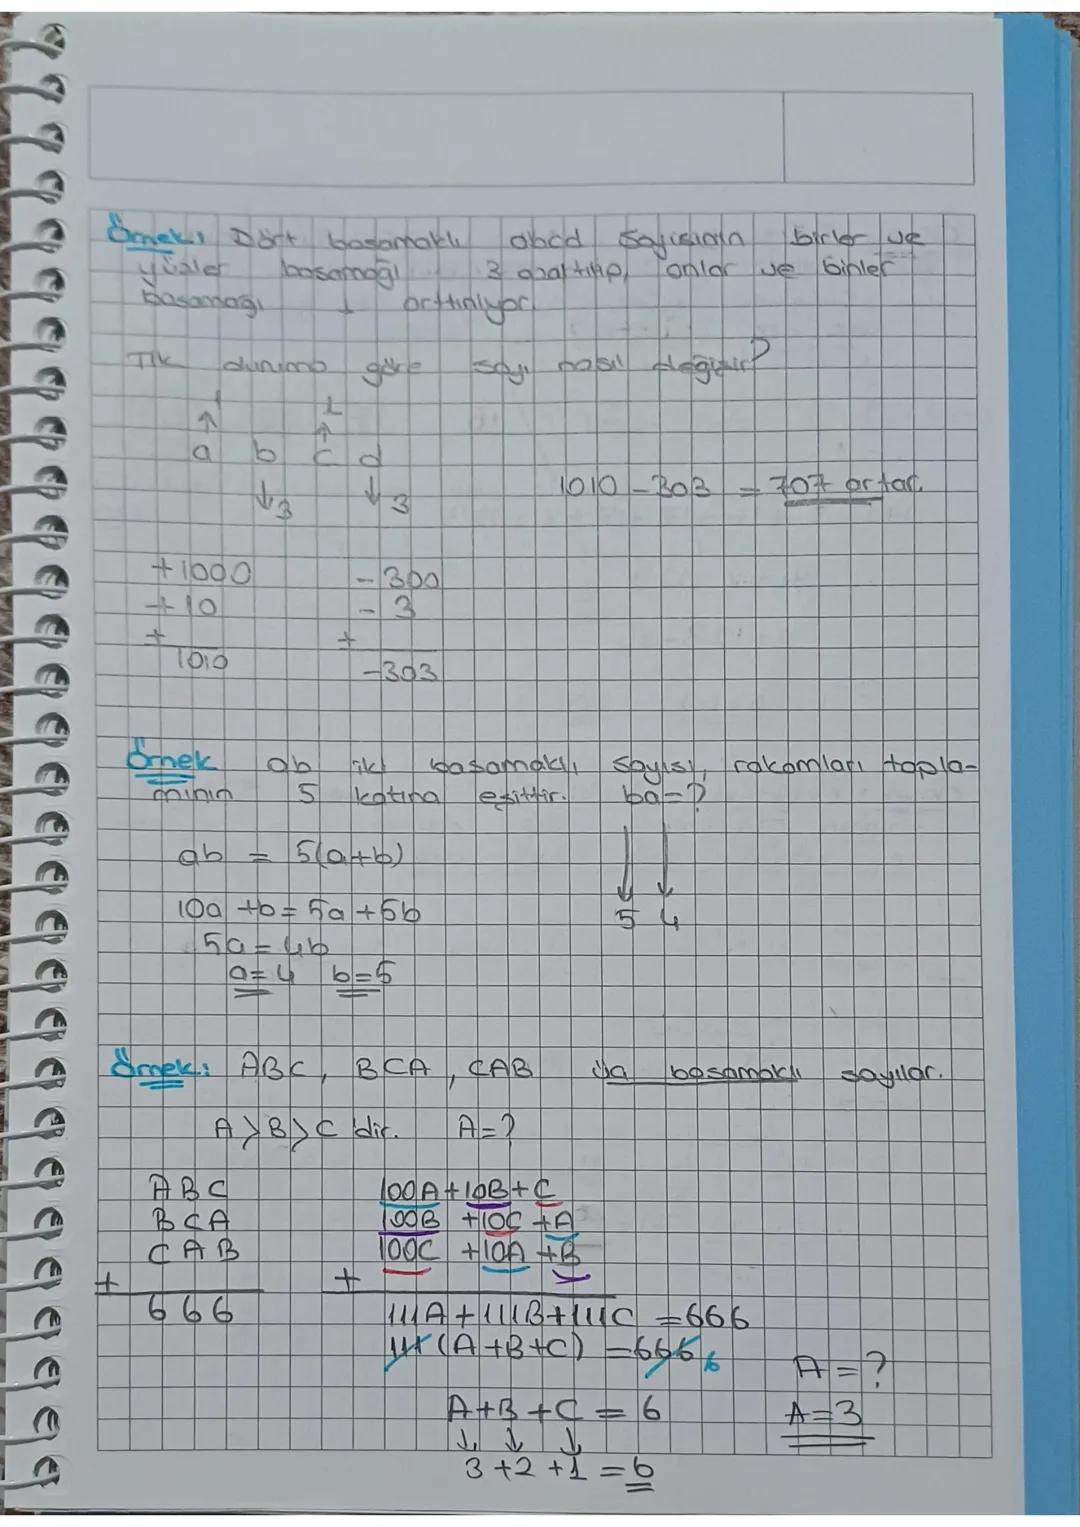 Örnek: Dört basamaklı abcd sayısının birler ve
yüzler basamağı 3 azaltılıp, onlar ve binler
basamağı 1 arttırılıyor.
İlk duruma göre sayı nasıl değişir?
1 1
a b c d
3 3
1010 - 303 = 707 artar.
+1000 -300
+10 -3
+ +
1010 -303
Örnek ab iki basamaklı sayısı, rakamları topla-
mının 5 katına eşittir. ba=?
ab = 5(a+b)
10a +b = 5a +5b
5 4
5a = 4b
a=4 b=5
Örnek: ABC, BCA, CAB üç basamaklı sayılar.
A>B>C dir. A=?
ABC 100A+10B+C
BCA 100B +10C +A
CAB 100C +10A +B
+ +
666 111A+111B+111C =666
111(A+B+C) =666 6
A=?
A+B+C = 6
A=3
3+2+1=6